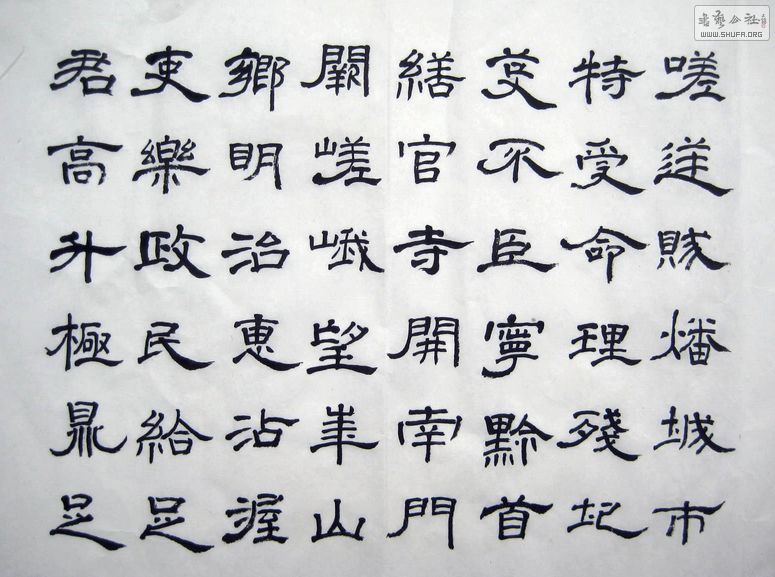 嗟逆賊燔城市
特受命理殘圮
芟不臣寧黔首
繕官寺開南門
闕嵯峨望華山
鄉明治惠沾渥
吏樂政民給足
君高升極鼎足
書藝公社
WWW.SHUFA.ORG